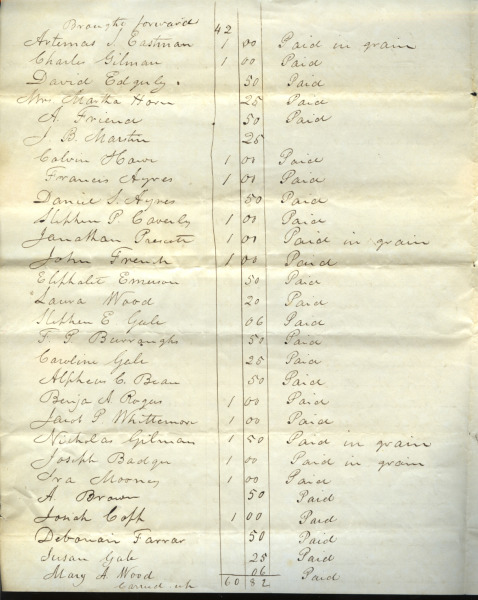 Brought forward 42
Artemas S. Eastman 1 00 Paid in grain
Charles Gilman 1 00 Paid
David Edgerly. 50 Paid
Mrs Martha Horn 25 Paid
A. Friend 50 Paid
J. B. Martin 25
Calvin 1 00 Paid
Francis Ayres 1 00 Paid
Daniel S. Ayres 50 Paid
Stephen P. Caverly 1 00 Paid
Jonathan Prescott 1 00 Paid in grain
John French 1 00 Paid
Eliphalet Emerson 50 Paid
Laura Wood 20 Paid
Stephen E Gale 06 Paid
F. P. Burroughs 50 Paid
Caroline Gale 25 Paid
Alpheus C. Bean 50 Paid
Benja A Rogers 1 00 Paid
Jacob P. Whittemore 1 00 Paid
Nicholas Gilman 1 50 Paid in grain
Joseph Badger 1 00 Paid in grain
Ira Mooney 1 00 Paid
A. Brown 50 Paid
Josiah Copp 1 00 Paid
Farrar 50 Paid
Susan Gale 25 Paid
Mary A Wood 06 Paid
Carried up 60 82